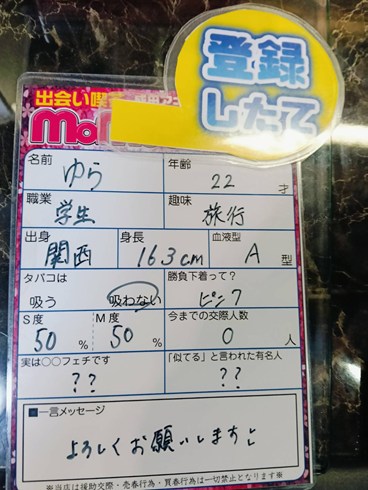 登録
したて
出会い喫
mo
名前
ゆら
年齢
22 才
職業
学生
趣味
旅行
出身
関西
身長
163cm
血液型
A 型
タバコは
吸う 吸わない
勝負下着って?
ピンク
S度
50 %
M度
50 %
今までの交際人数
0 人
実は○○フェチです
??
「似てる」と言われた有名人
??
■一言メッセージ
よろしくお願いします
※当店は援助交際・売春行為・買春行為は一切禁止となります※